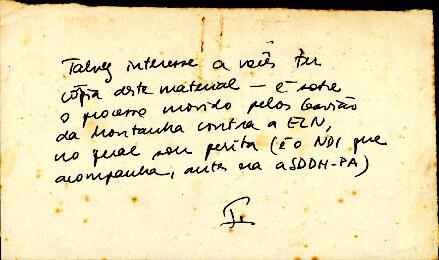 Talvez interesse a vocês ter
cópia deste material – é sobre
o processo movido pelos Gavião
da Montanha contra a ELN,
no qual sou perita (é o NDI que
acompanha, antes era a SDDH-PA)